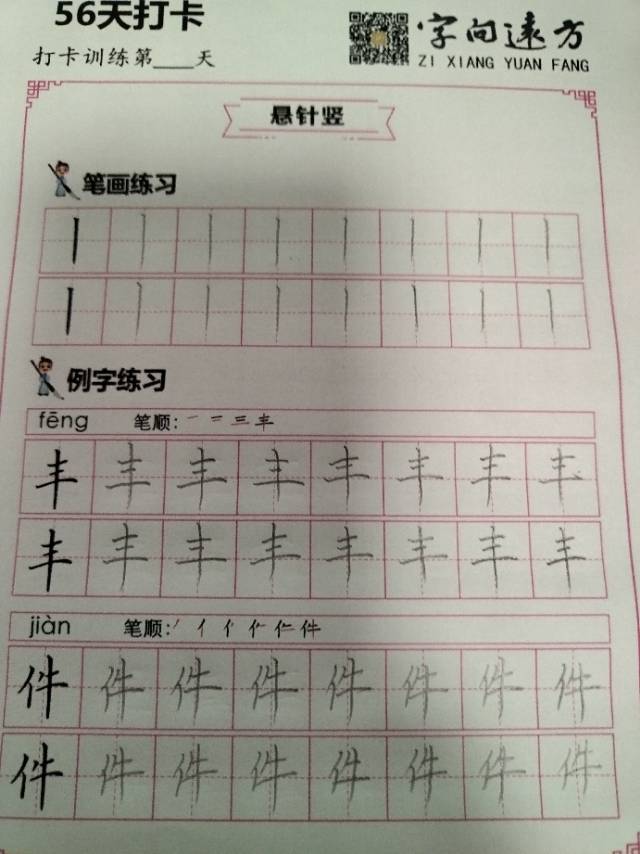 56天打卡
字向远方
打卡训练第____天
ZI XIANG YUAN FANG
悬针竖
笔画练习
丨 丨 丨 丨 丨 丨 丨 丨
丨 丨 丨 丨 丨 丨 丨 丨
例字练习
fēng 笔顺: 一 二 三 丰
丰 丰 丰 丰 丰 丰 丰 丰
丰 丰 丰 丰 丰 丰 丰 丰
jiàn 笔顺: 丿 亻 件
件 件 件 件 件 件 件 件
件 件 件 件 件 件 件 件